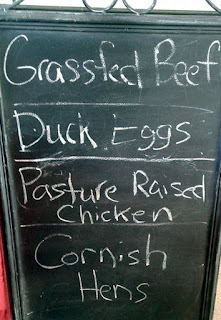 Grassfed Beef
Duck Eggs
Pasture Raised
Chicken
Cornish
Hens